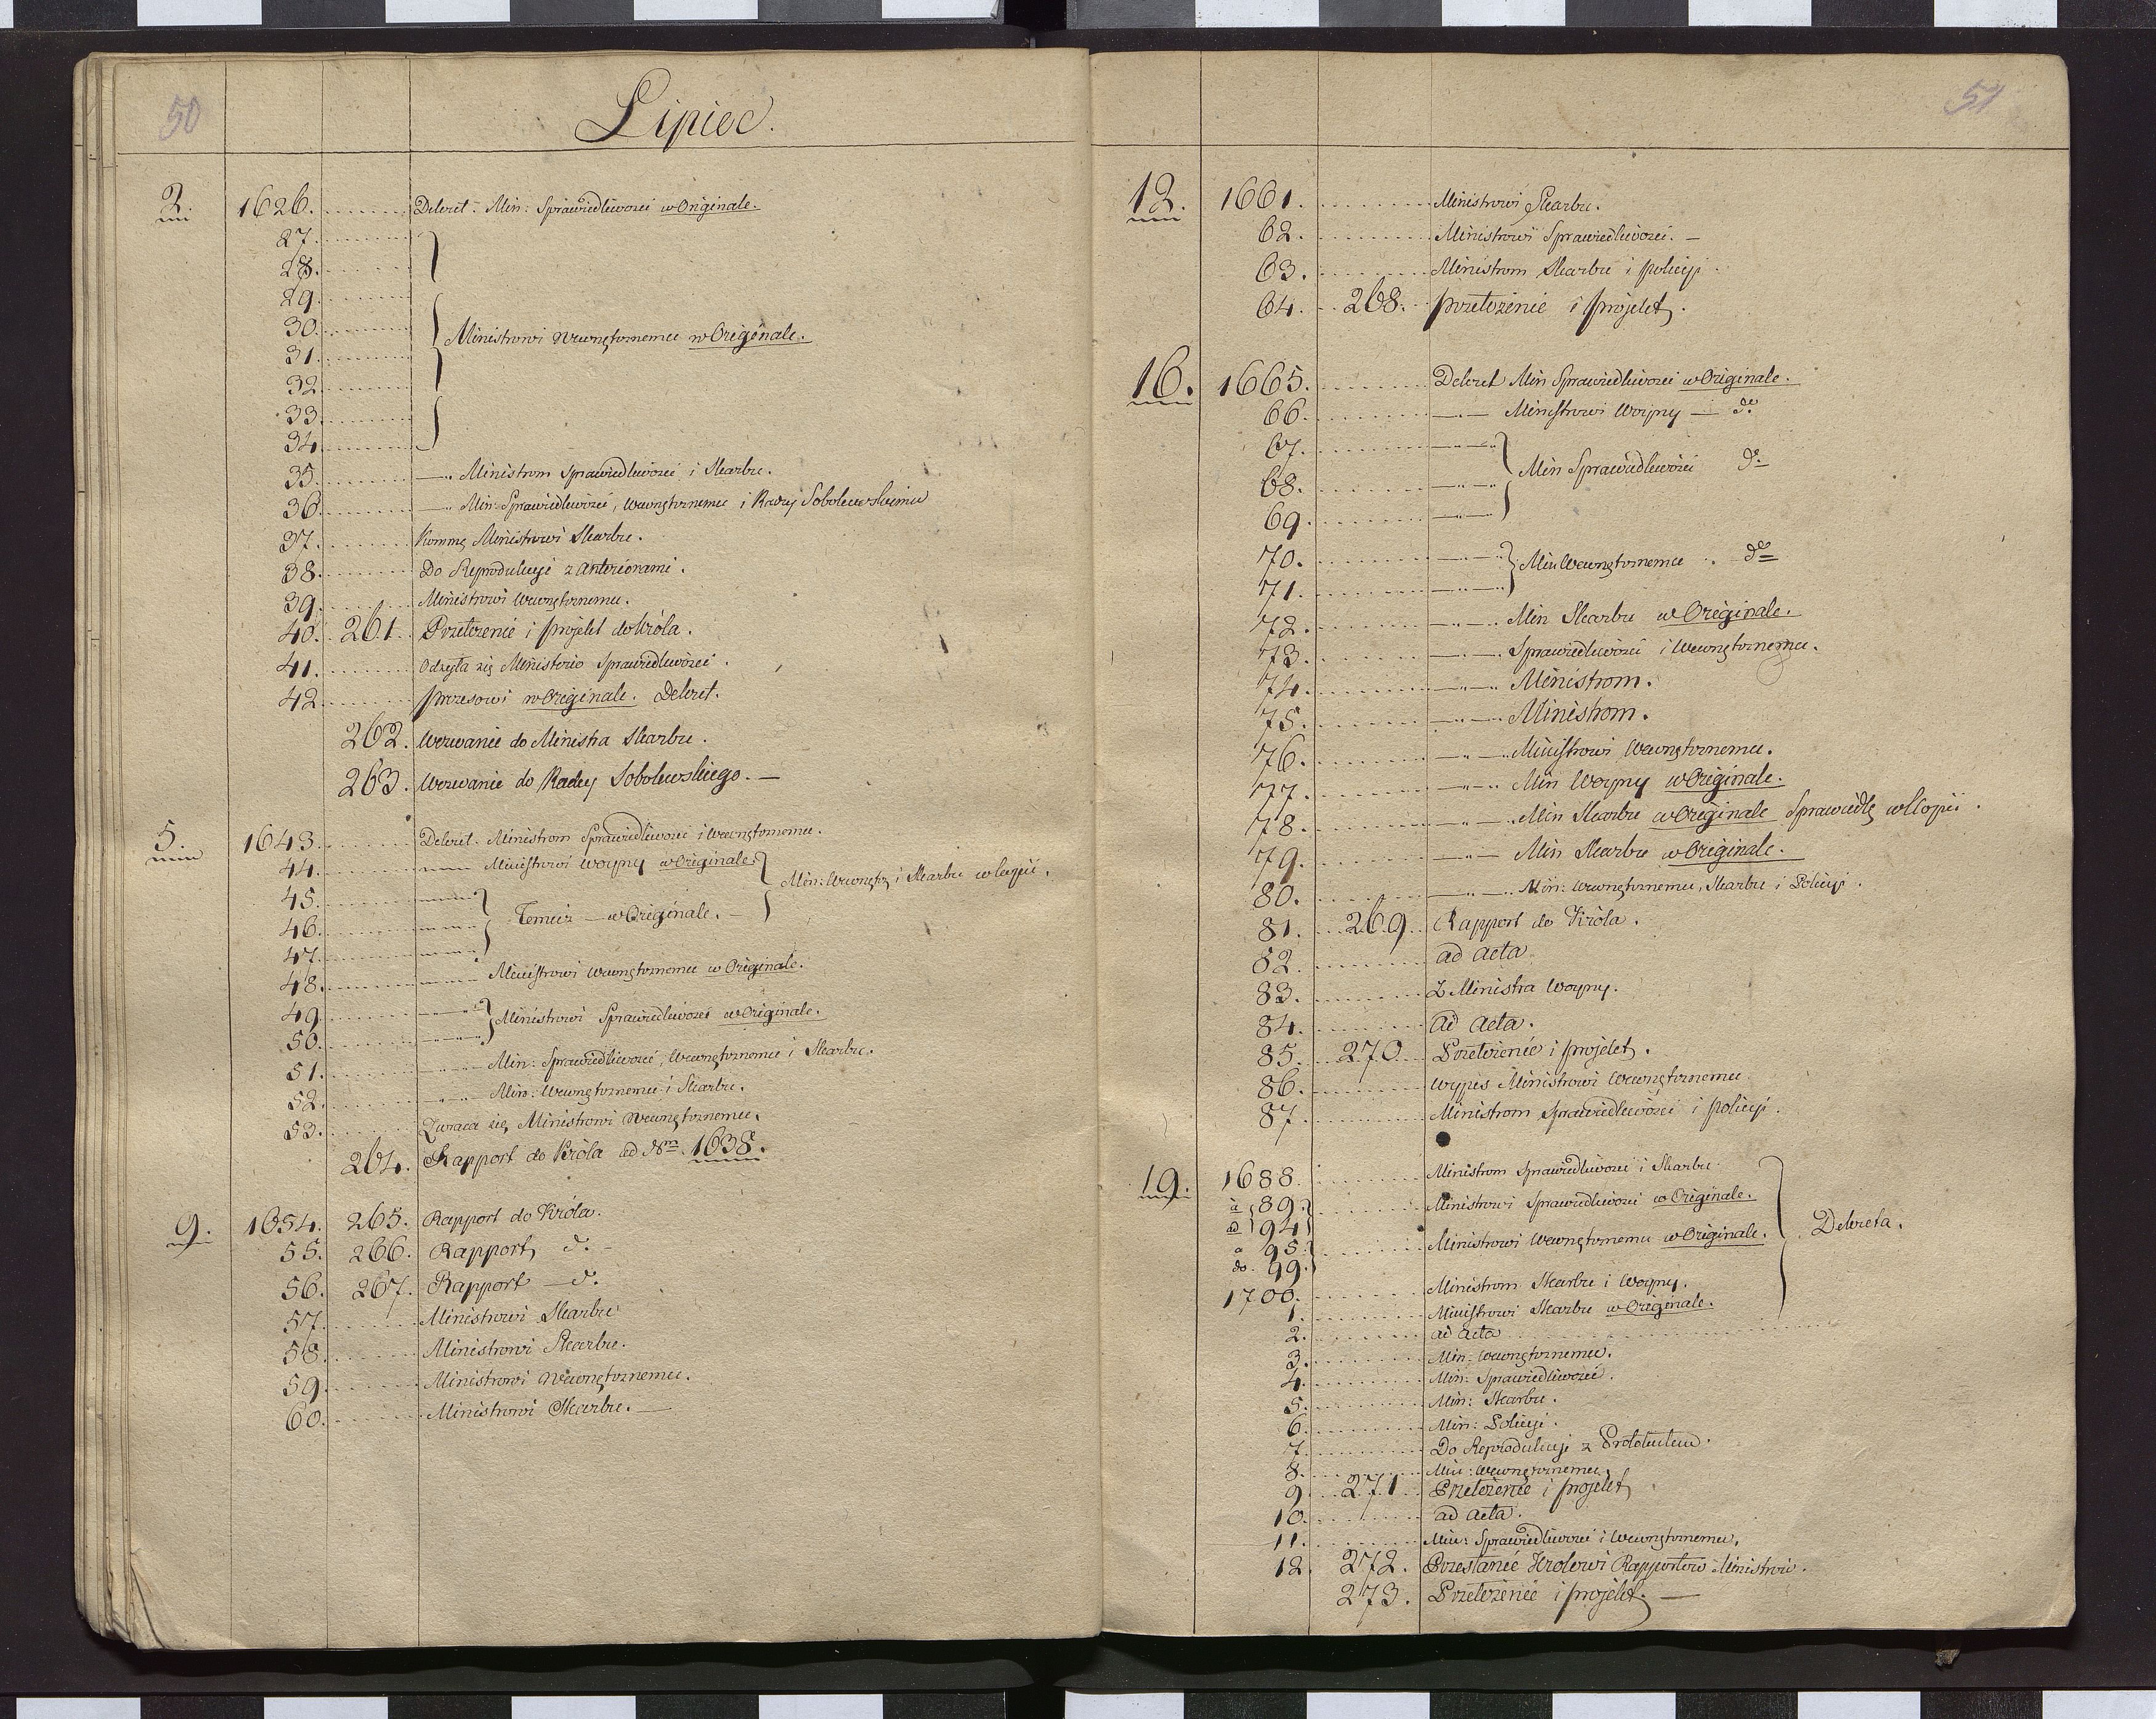 50
Lipiec.
2. 1626. Dekret. Min: Sprawiedliwości w Originale.
27.
28.
29.
30. Ministrowi Wewnętrznemu w Originale.
31.
32.
33.
34.
35. —„ Ministrom Sprawiedliwości i Skarbu.
36. —„ Min: Sprawiedliwości, Wewnętrznemu i Radcy Sobolewskiemu
37. Kommę Ministrowi Skarbu.
38. Do Reprodukcyi z anteriorami.
39. Ministrowi Wewnętrznemu.
40. 261. Przełożenie i projekt do Króla.
41. Odsyła się Ministrio Sprawiedliwości.
42. Prezesowi w Originale. Dekret.
262. Wezwanie do Ministra Skarbu.
263. Wezwanie do Radcy Sobolewskiego. —
5. 1643. Dekret. Ministrom Sprawiedliwości i Wewnętrznemu.
44. Ministrowi Woyny w Originale.
Min: Wewnętrz i Skarbu w kopii.
45.
46. Temuż — w Originale. —
47.
48. Ministrowi Wewnętrznemu w Originale.
49. Ministrowi Sprawiedliwości w Originale.
50.
51. Min: Sprawiedliwości, Wewnętrznemu i Skarbu.
52. Min: Wewnętrznemu i Skarbu.
53. Zwraca się Ministrowi Wewnętrznemu.
264. Rapport do Króla ad Nm 1638.
9. 1654. 265. Rapport do Króla.
55. 266. Rapport d. —
56. 267. Rapport — d.
57. Ministrowi Skarbu
58. Ministrowi Skarbu.
59. Ministrowi Wewnętrznemu.
60. Ministrowi Skarbu. —
51
12. 1661. Ministrowi Skarbu.
62. Ministrowi Sprawiedliwości. —
63. Ministrom Skarbu i policyi.
64. 268. przełożenie i projekt.
16. 1665. Dekret Min Sprawiedliwości w Originale.
66. —„— Ministrowi Woyny — do
67.
68. Min Sprawiedliwości do
69.
70. Min Wewnętrznemu „ do
71.
72. —„— Min Skarbu w Originale.
73. —„— Sprawiedliwości i Wewnętrznemu.
74. —„— Ministrom.
75. —„— Ministrom.
76. —„— Ministrowi Wewnętrznemu.
77. —„— Min Woyny w Originale.
78. —„— Min Skarbu w Originale Sprawiedlę w Kopii.
79. —„— Min Skarbu w Originale.
80. —„— Min: Wewnętrznemu, Skarbu i Policyi.
81. 269. Rapport do Króla.
82. ad acta.
83. Z Ministra Woyny.
84. ad acta.
85. 270. Przełożenie i projekt.
86. Wypis Ministrowi Wewnętrznemu.
87. Ministrom Sprawiedliwości i policyi.
19. 1688. Ministrom Sprawiedliwości i Skarbu.
à 89. Ministrowi Sprawiedliwości w Originale.
ad 94
Dekreta.
a 95. Ministrowi Wewnętrznemu w Originale.
do. 99.
1700. Ministrom Skarbu i Woyny.
1. Ministrowi Skarbu w Originale.
2. ad acta
3. Min: Wewnętrznemu.
4. Min: Sprawiedliwości.
5. Min: Skarbu.
6. Min: Policyi.
7. Do Reprodukcyi z Protokułem.
8. Min: Wewnętrznemu.
9. 271. Przełożenie i projekt
10. ad acta.
11. Min: Sprawiedliwości i Wewnętrznemu.
12. 272. Przesłanie Królowi Rapportów Ministrów.
273. Przełożenie i projekt. —